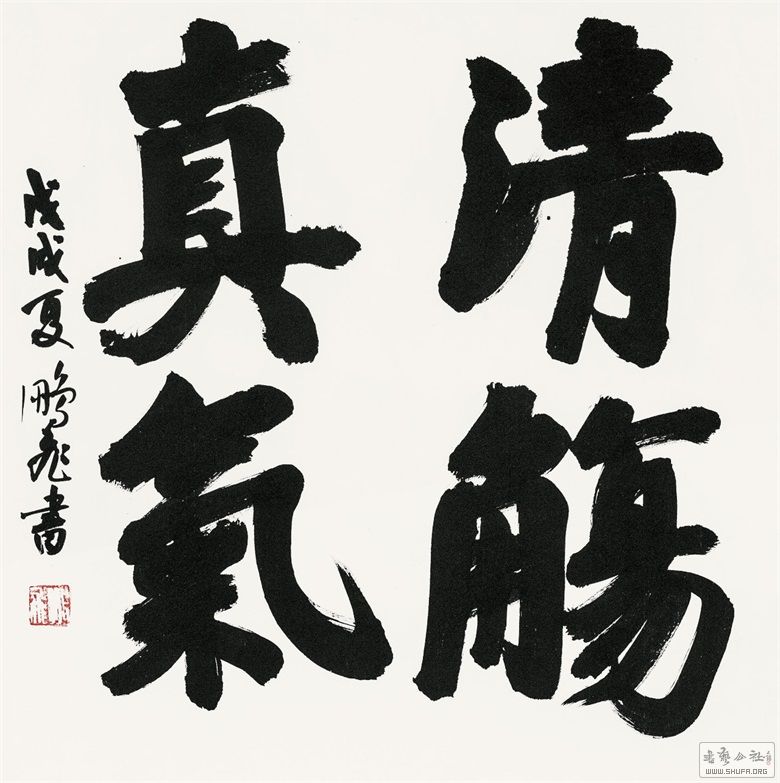 清觴
真氣
戊戌夏鹏飛書
書藝公社
WWW.SHUFA.ORG